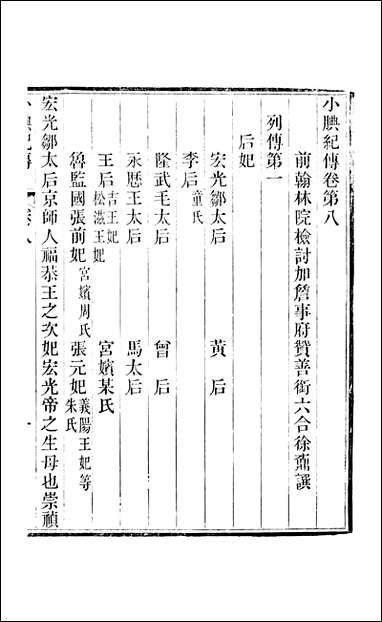 小腆紀傳卷第八
前翰林院檢討加詹事府贊善銜六合徐鼒譔
列傳第一
后妃
宏光鄒太后 黃后
李后 童氏
隆武毛太后 曾后
永厯王太后 馬太后
王后 吉王妃 松滋王妃 宮嬪某氏
魯監國張前妃 宮嬪周氏 張元妃 義陽王妃等 朱氏
宏光鄒太后京師人福恭王之次妃宏光帝之生母也崇禎